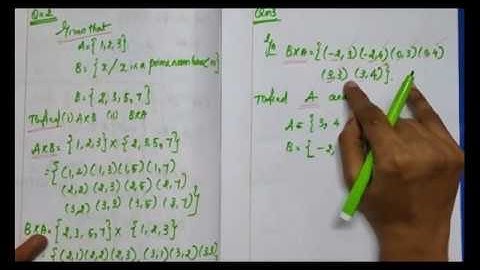 Qn 2
Given that
A={1,2,3}
B={x/x is a prime number
B={2,3,5,7}
To find (i) AxB (ii) BxA
AxB={1,2,3}x{2,3,5,7}
={(1,2)(1,3)(1,5)(1,7)
(2,2)(2,3)(2,5)(2,7)
(3,2)(3,3)(3,5)(3,7)}
BxA={2,3,5,7}x{1,2,3}
={(2,1)(2,2)(2,3)(3,1)(3,2)(3,3)
Qn 3
BxA={(-2,3)(-2,4)(0,3)(0,4)
(3,3)(3,4)}.
To find A
A={3,4
B={-2,